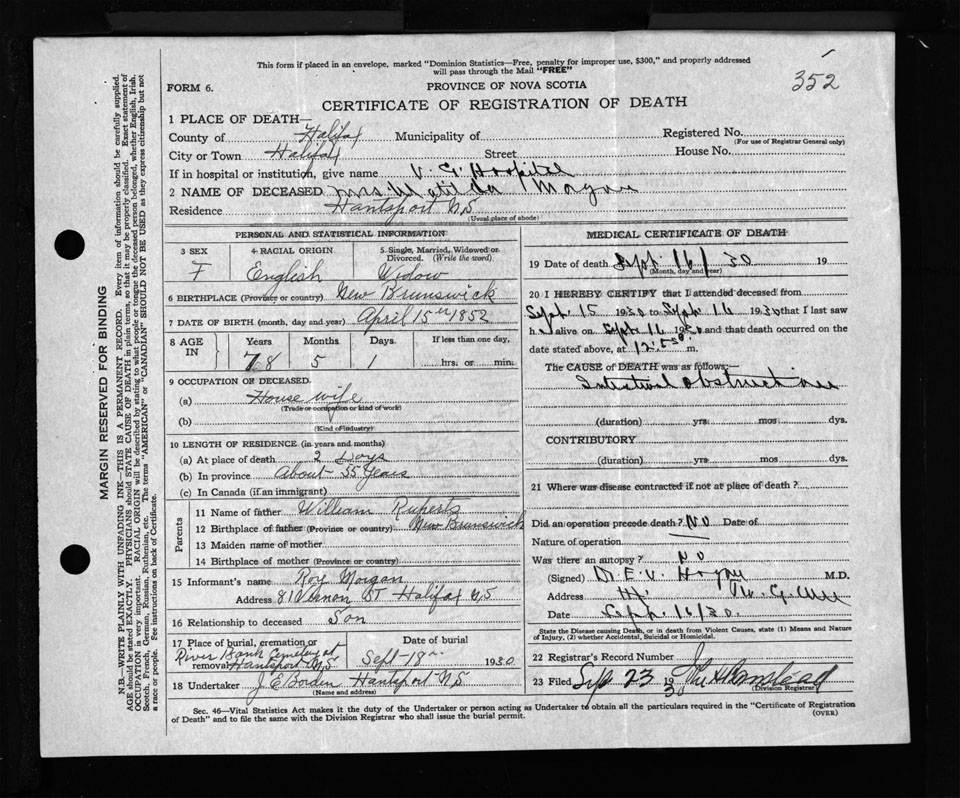 This form if placed in an envelope, marked "Dominion Statistics—Free, penalty for improper use, $300," and properly addressed
will pass through the Mail "FREE"
352
FORM 6.
PROVINCE OF NOVA SCOTIA
CERTIFICATE OF REGISTRATION OF DEATH
1 PLACE OF DEATH—
County of Halifax Municipality of Registered No.
(For use of Registrar General only)
City or Town Halifax Street House No.
If in hospital or institution, give name V. G. Hospital
2 NAME OF DECEASED Mrs Matilda Morgan
Residence Hantsport N,S
(Usual place of abode)
PERSONAL AND STATISTICAL INFORMATION
3 SEX 4 RACIAL ORIGIN 5 Single, Married, Widowed or Divorced. (Write the word)
F English Widow
6 BIRTHPLACE (Province or country) New Brunswick
7 DATE OF BIRTH (month, day and year) April 15th 1852
8 AGE IN Years Months Days If less than one day,
78 5 1 hrs. or min.
9 OCCUPATION OF DECEASED.
(a) House wife
(Trade or occupation or kind of work)
(b)
(Kind of industry)
10 LENGTH OF RESIDENCE (in years and months)
(a) At place of death 2 Days
(b) In province About 55 Years
(c) In Canada (if an immigrant)
Parents
11 Name of father William Ruperts
12 Birthplace of father (Province or country) New Brunswick
13 Maiden name of mother
14 Birthplace of mother (Province or country)
15 Informant's name Roy Morgan
Address 81 Vernon ST Halifax N,S
16 Relationship to deceased Son
17 Place of burial, cremation or removal Date of burial
River Bank Cemetery at
Hantsport N,S Sept 18th 1930
18 Undertaker J. E Borden Hantsport N,S
(Name and address)
MEDICAL CERTIFICATE OF DEATH
19 Date of death Sept. 16/30 19
(Month, day and year)
20 I HEREBY CERTIFY that I attended deceased from
Sept. 15 1930 to Sept. 16 1930 that I last saw
h alive on Sept. 16 1930 and that death occurred on the
date stated above, at 12:50 m.
The CAUSE of DEATH was as follows:
Intestinal Obstruction
(duration) yrs. mos. dys.
CONTRIBUTORY
(duration) yrs. mos. dys.
21 Where was disease contracted if not at place of death?
Did an operation precede death? NO Date of
Nature of operation
Was there an autopsy? NO
(Signed) M.D.
Address
Date Sept. 16/30.
State the Disease causing Death, or in death from Violent Causes, state (1) Means and Nature
of Injury, (2) whether Accidental, Suicidal or Homicidal.
22 Registrar's Record Number
23 Filed Sep 23 1930
(Division Registrar)
Sec. 46—Vital Statistics Act makes it the duty of the Undertaker or person acting as Undertaker to obtain all the particulars required in the "Certificate of Registration
of Death" and to file the same with the Division Registrar who shall issue the burial permit.
(OVER)
MARGIN RESERVED FOR BINDING
N.B.—WRITE PLAINLY WITH UNFADING INK—THIS IS A PERMANENT RECORD. Every item of information should be carefully supplied.
AGE should be stated EXACTLY. PHYSICIANS should STATE CAUSE OF DEATH in plain terms, so that it may be properly classified. Exact statement of
OCCUPATION is very important. RACIAL ORIGIN will be described by stating to what people or tongue the deceased person belonged, whether English, Irish,
Scotch, French, German, Russian, Ruthenian, etc. The terms "AMERICAN" or "CANADIAN" SHOULD NOT BE USED as they express citizenship but not
a race or people. See instructions on back of Certificate.